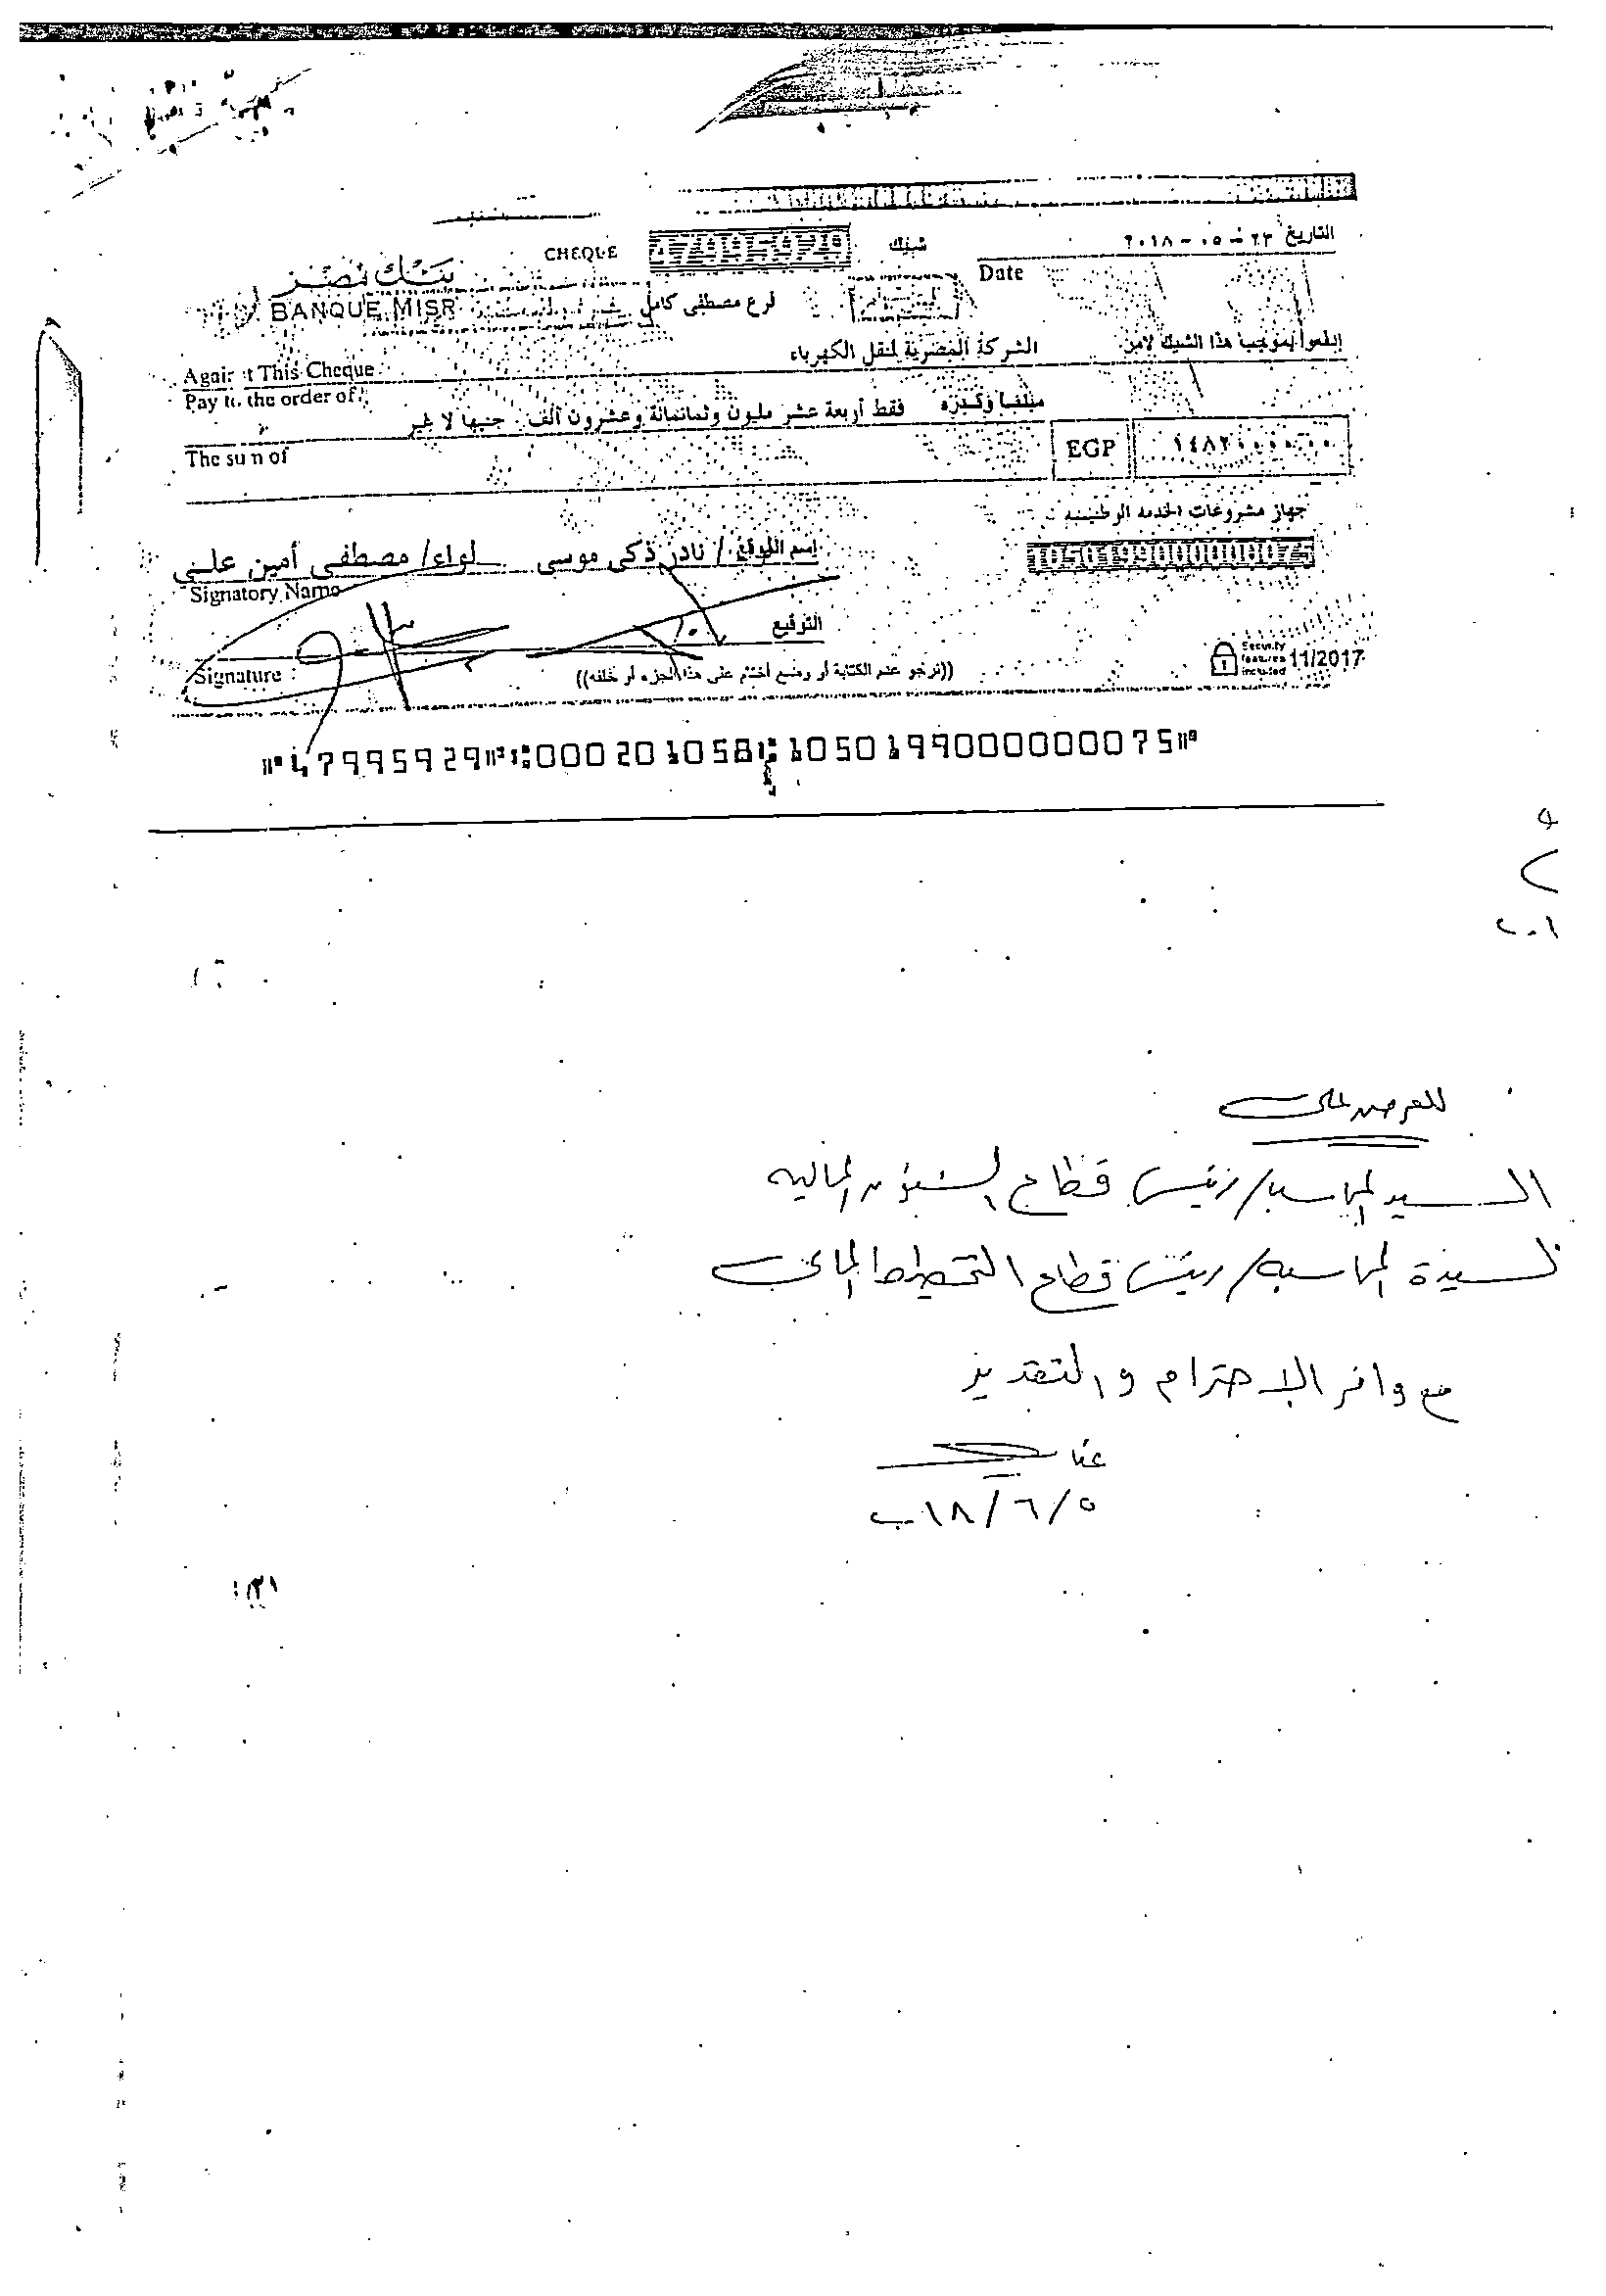 التاريخ ٢٣-٠٥-٢٠١٨
Date
شيك
47995929
CHEQUE
بنك مصر
BANQUE MISR
فرع مصطفى كامل
إدفعوا بموجب هذا الشيك لامر
الشركة المصرية لنقل الكهرباء
Against This Cheque
Pay to the order of
مبلغا وقدره فقط أربعة عشر مليون وثمانمائة وعشرون ألف جنيها لا غير
The sum of
EGP
جهاز مشروعات الخدمه الوطنيه
10501990000000075
إسم الموقع / نادر ذكى موسى لواء/ مصطفى أمين علي
Signatory Name
التوقيع
Signature :
((نرجو عدم الكتابة أو وضع أختام على هذا الجزء أو خلفه))
Security features included 11/2017
⑈47995929⑈⑆000201058⑆10501990000000075⑈
للعرض على
السيد المحاسب/ رئيس قطاع الشئون الماليه
السيدة المحاسبه/ رئيس قطاع التخطيط المالى
مع وافر الاحترام والتقدير
٥/٦/٢٠١٨